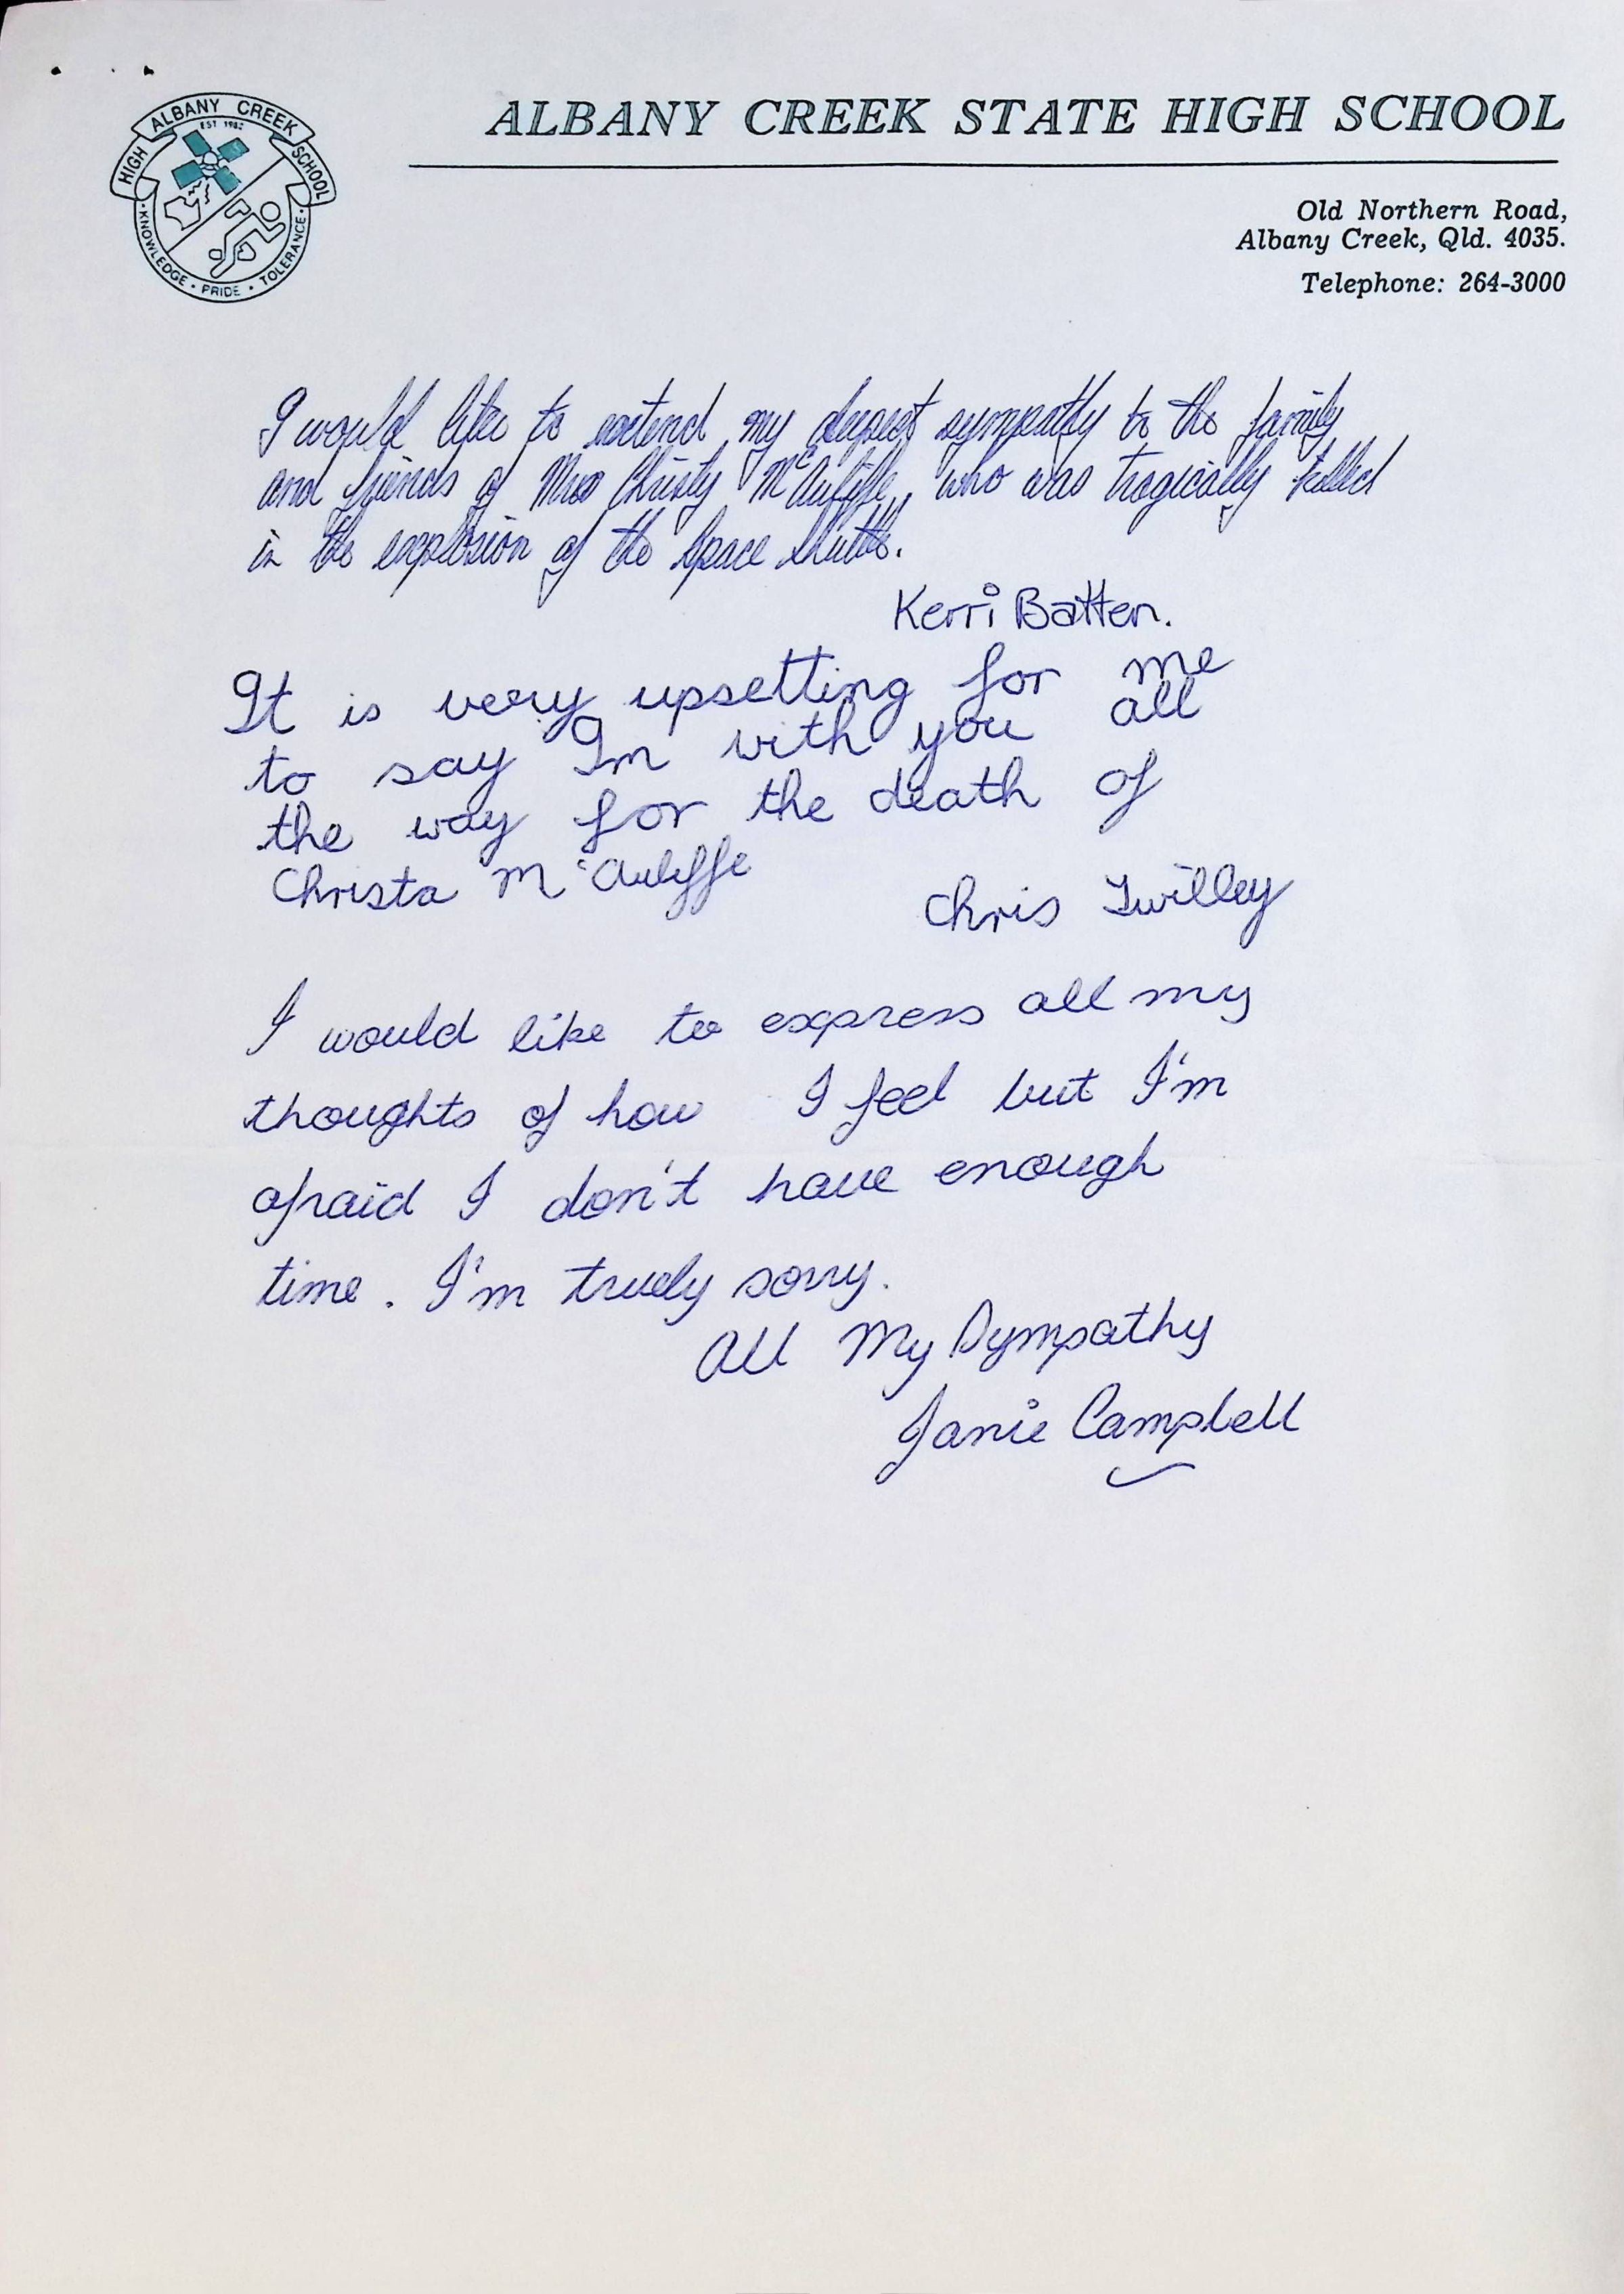 ALBANY CREEK
HIGH SCHOOL
EST 1982
KNOWLEDGE · PRIDE · TOLERANCE
ALBANY CREEK STATE HIGH SCHOOL
Old Northern Road,
Albany Creek, Qld. 4035.
Telephone: 264-3000
I would like to extend my deepest sympathy to the family
and friends of Miss Christy McAuliffe, who was tragically killed
in the explosion of the Space Shuttle.
Kerri Batten.
It is very upsetting for me
to say Im with you all
the way for the death of
Christa McAuliffe
Chris Twilley
I would like to express all my
thoughts of how I feel but I'm
afraid I don't have enough
time. I'm truely sorry.
All My Sympathy
Janie Campbell